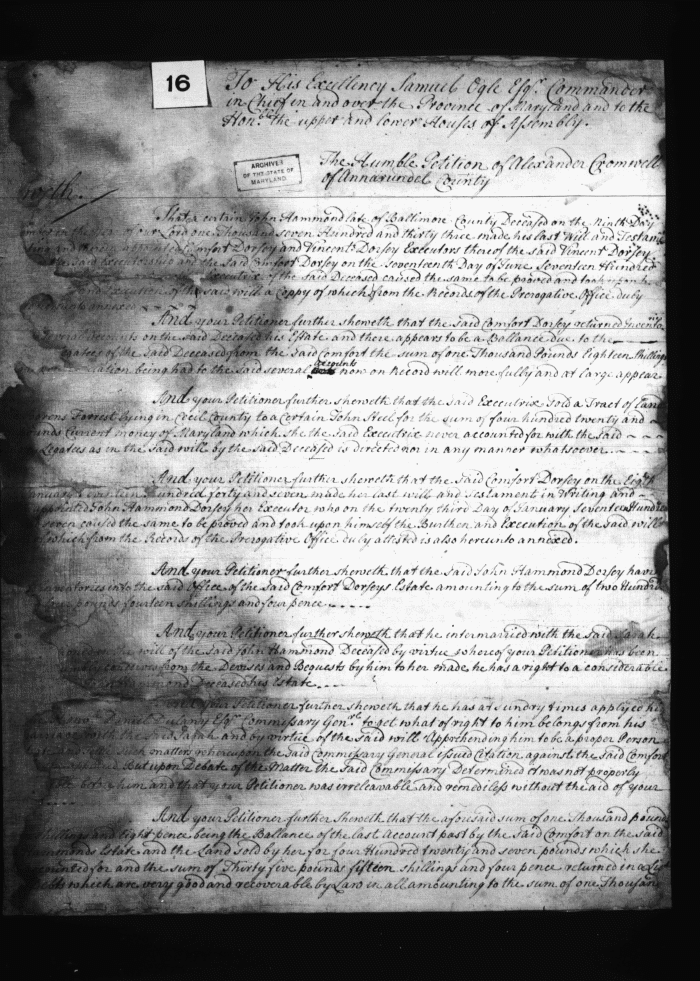 16
To His Excellency Samuel Ogle Esqr. Commander
in Chief in and over the Province of Maryland and to the
Honble. the upper and lower Houses of Assembly.
ARCHIVES
OF THE STATE OF
MARYLAND
The Humble Petition of Alexander Cromwell
of Annarundel County
weth.
That a certain John Hammond late of Baltimore County Deceased on the Ninth Day
Lord one Thousand seven Hundred and thirty three made his last Will and Testam
Comfort Dorsey and Vincent Dorsey Executors thereof the said Vincent Dorsey
and the said Comfort Dorsey on the Seventeenth Day of June Seventeen Hundred
Executrix of the said Deceased caused the same to be prooved and took upon he
of the said will a Coppy of which from the Records of the Prerogative Office duly
And your Petitioner further sheweth that the said Comfort Dorsey returned Invento
Several accounts on the said Deceased his Estate and there appears to be a Ballance due to the
Legatees of the Said Deceased from the Said Comfort the sum of one Thousand Pounds Eighteen Shillings
Relation being had to the said several accounts now on Record will more fully and at large appear
And your Petitioner further sheweth that the said Executrix Sold a Tract of Land
Forrest lying in Cecil County to a Certain John Steel for the sum of four hundred twenty and
ounds Current money of Maryland which She the said Executrix never accounted for with the Said
Legatees as in the Said will by the said Deceased is directed nor in any manner whatsoever
And your Petitioner further sheweth that the said Comfort Dorsey on the Eighth
anuary Seventeen Hundred forty and seven made her last will and Testament in Writing and
appointed John Hammond Dorsey her Executor who on the twenty third Day of January Seventeen Hundred
seven caused the same to be proved and took upon himself the Burthen and Execution of the said will
of which from the Records of the Prerogative Office duly attested is also hereunto annexed.
And your Petitioner further sheweth that the said John Hammond Dorsey hav
Inventories into the said Office of the Said Comfort Dorseys Estate amounting to the sum of two Hundred
pounds fourteen shillings and four pence
And your Petitioner further sheweth that he intermarried with the said Sarah
the will of the Said John Hammond Deceased by virtue whereof your Petitioner has been
from the Devises and Bequests by him to her made he has a right to a considerable
Hammond Deceased his Estate
And your Petitioner further sheweth that he has at sundry times applyed hi
Daniel Dulany Esqr. Commissary Genral. to get what of right to him belongs from his
with the said Sarah and by virtue of the Said will Apprehending him to be a proper Person
Such matters whereupon the said Commissary General issued Citation against the said Comfort
But upon Debate of the Matter the said Commissary Determined it was not properly
before him and that your Petitioner was irreleavable and remediless without the aid of your
And your Petitioner further sheweth that the aforesaid sum of one Thousand pound
shillings and Eight pence being the Ballance of the last Account past by the Said Comfort on the said
monds Estate and the Land sold by her for four Hundred twenty and seven pounds which she
ounted for and the sum of Thirty five pounds fifteen shillings and four pence returned in a List
Debts which are very good and recoverable by Law in all amounting to the sum of one Thousand